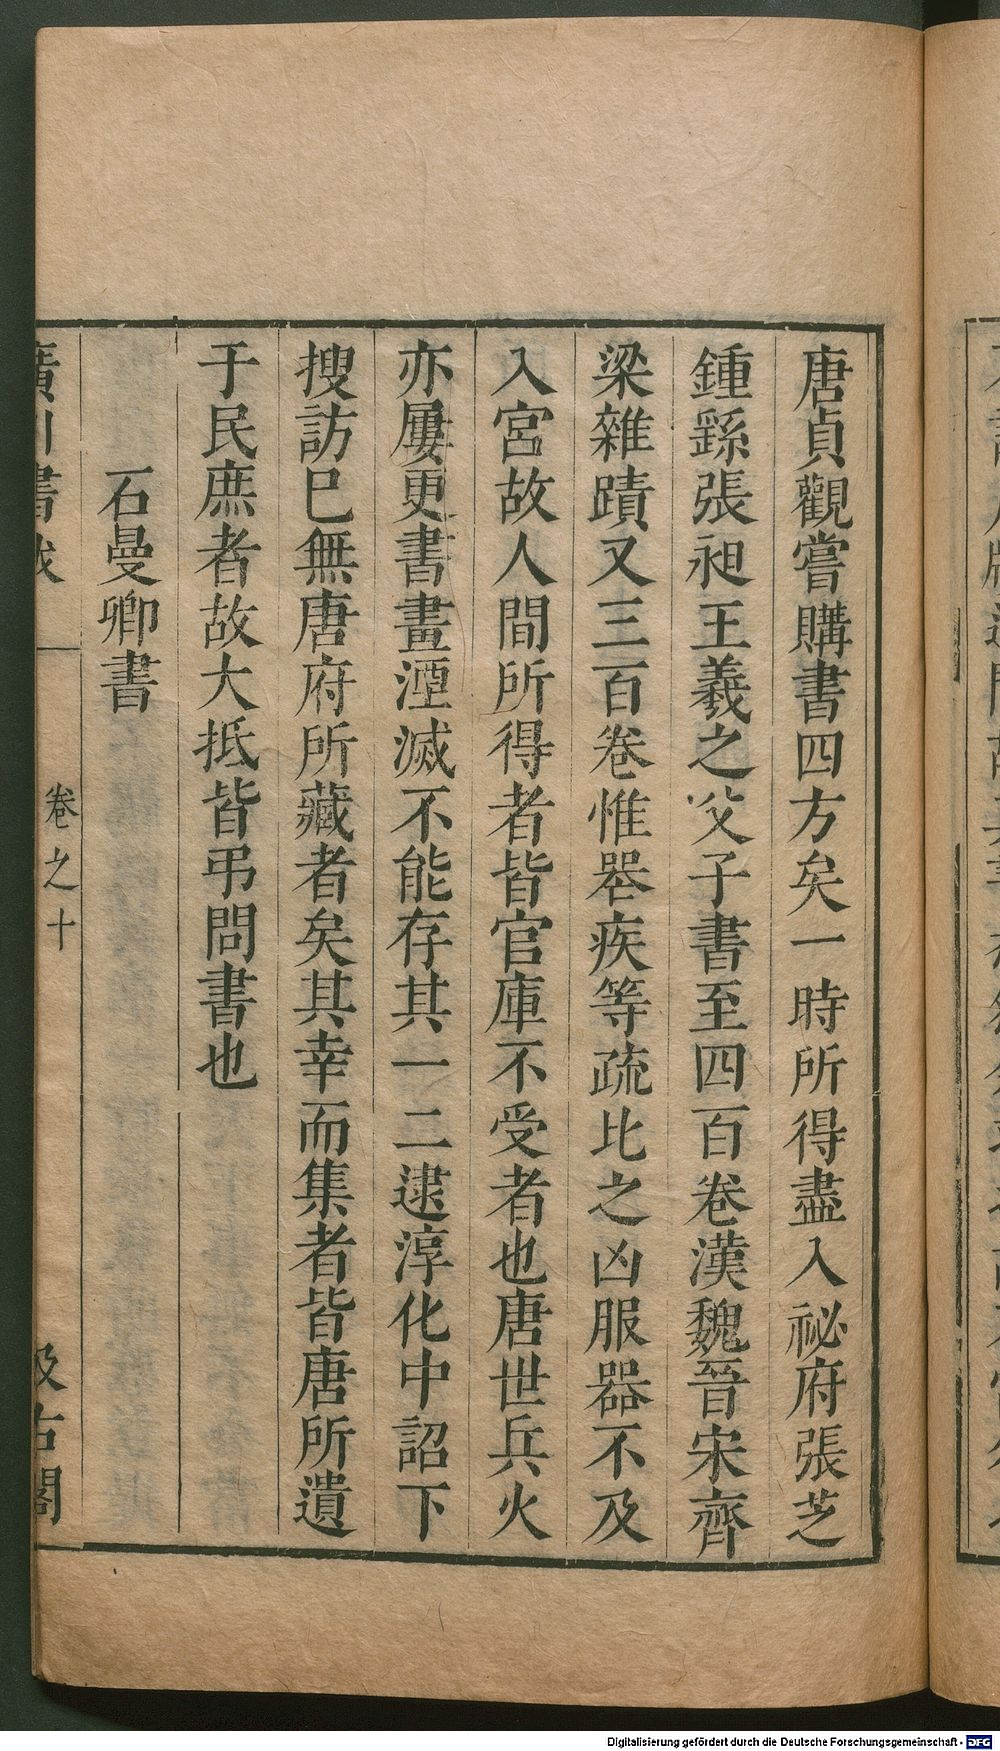 唐貞觀嘗購書四方矣一時所得盡入祕府張芝
鍾繇張昶王羲之父子書至四百卷漢魏晉宋齊
梁雜蹟又三百卷惟喪疾等疏比之凶服器不及
入宮故人間所得者皆官庫不受者也唐世兵火
亦屢更書畫湮滅不能存其一二逮淳化中詔下
搜訪已無唐府所藏者矣其幸而集者皆唐所遺
于民庶者故大抵皆弔問書也
石曼卿書
廣川書跋
卷之十
汲古閣
Digitalisierung gefördert durch die Deutsche Forschungsgemeinschaft - DFG